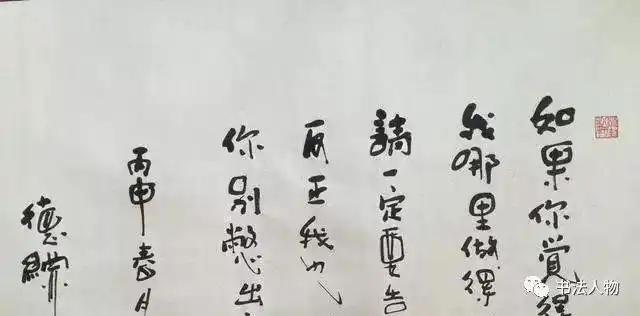 如果你覺得
我哪里做得
請一定要告
反正我也
你別憋出
丙申春月
德綱
书法人物